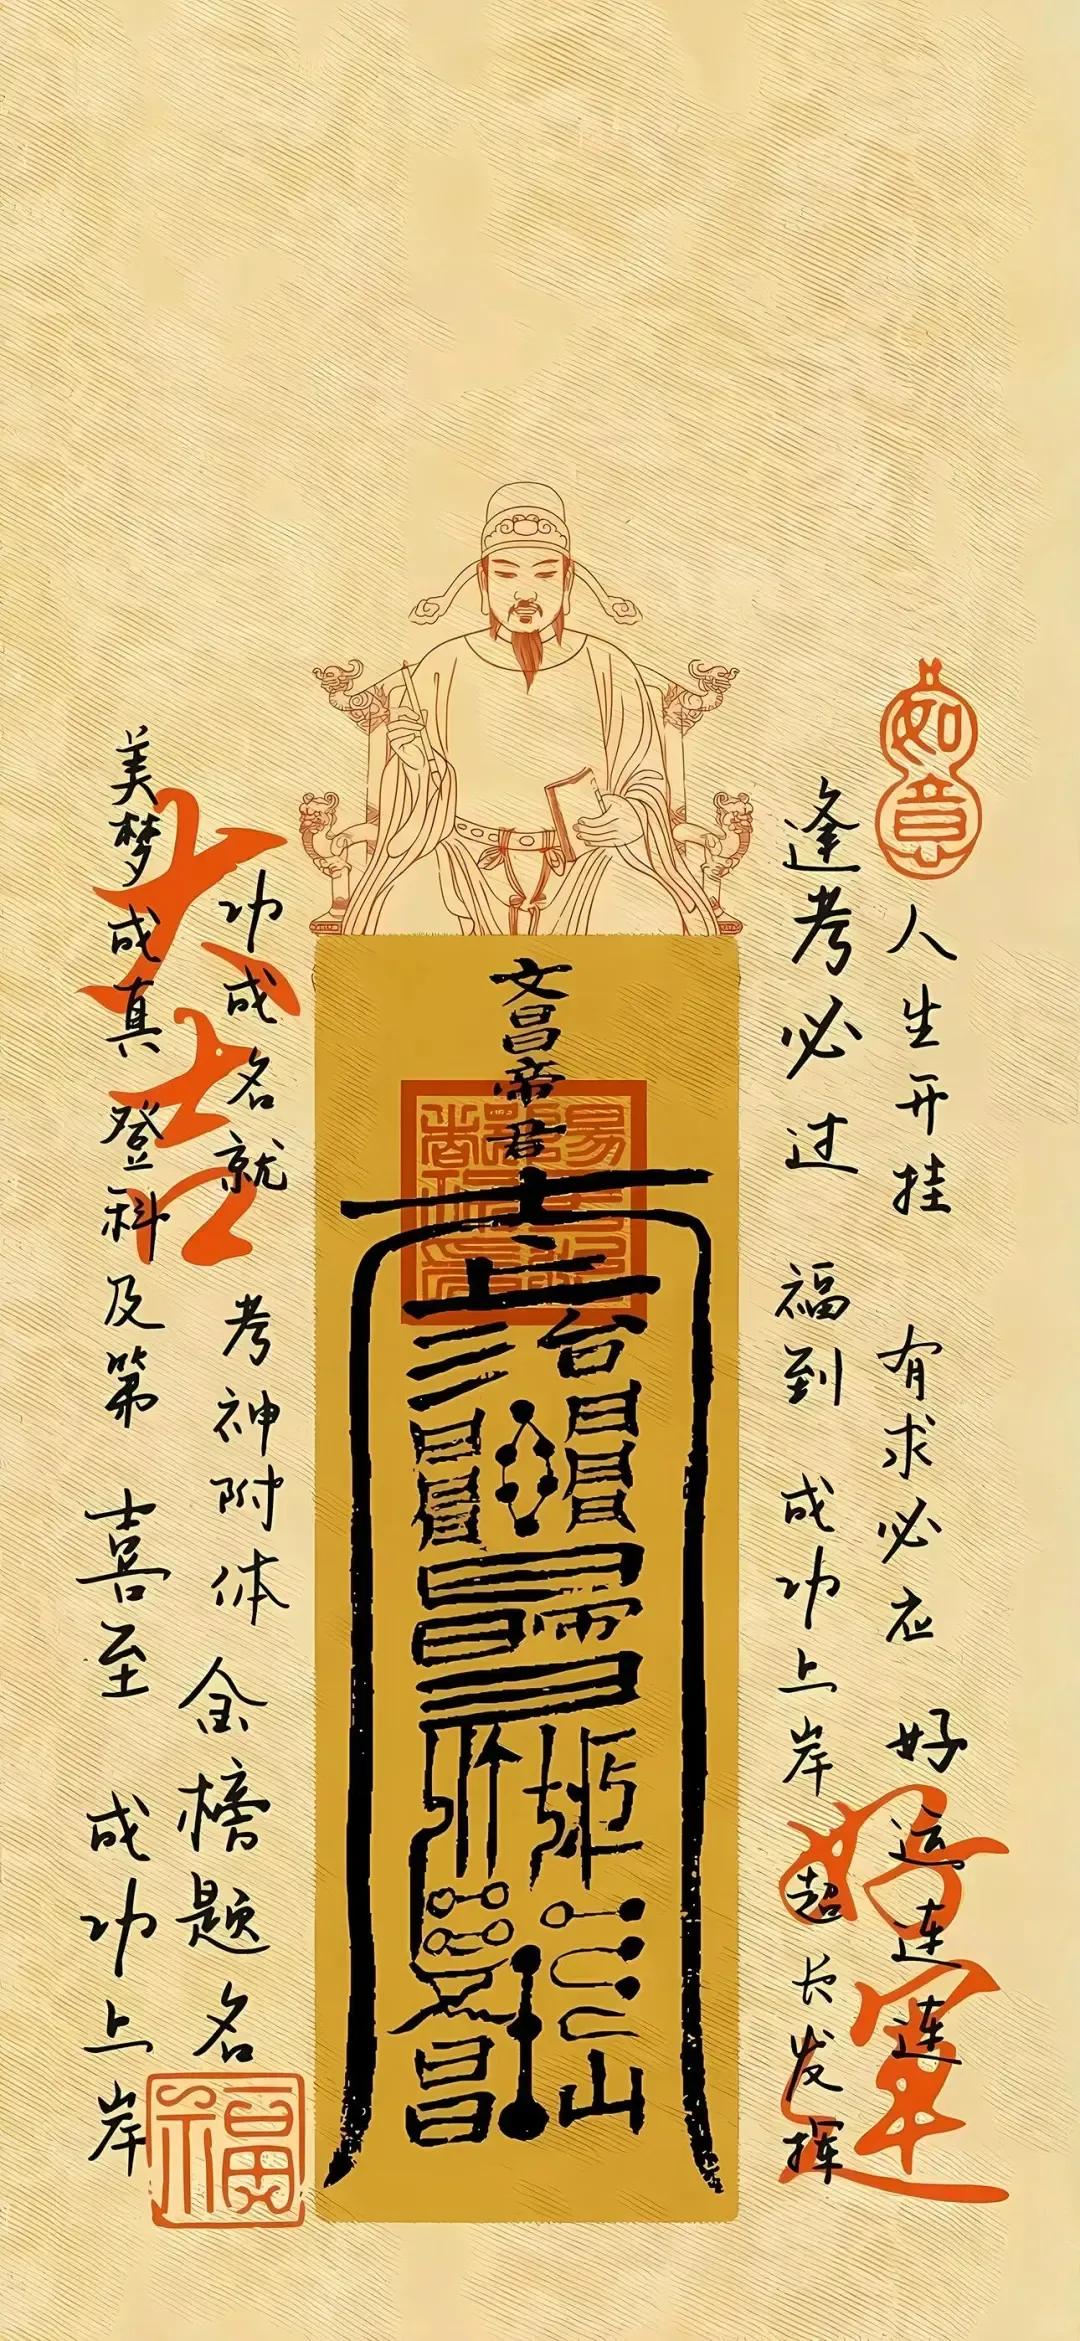 如意
人生开挂 有求必应 好运连连
逢考必过 福到 成功上岸 超长发挥
好运
文昌帝君
台
昌
山
功成名就 考神附体 金榜题名
大吉
美梦成真 登科及第 喜至 成功上岸
福